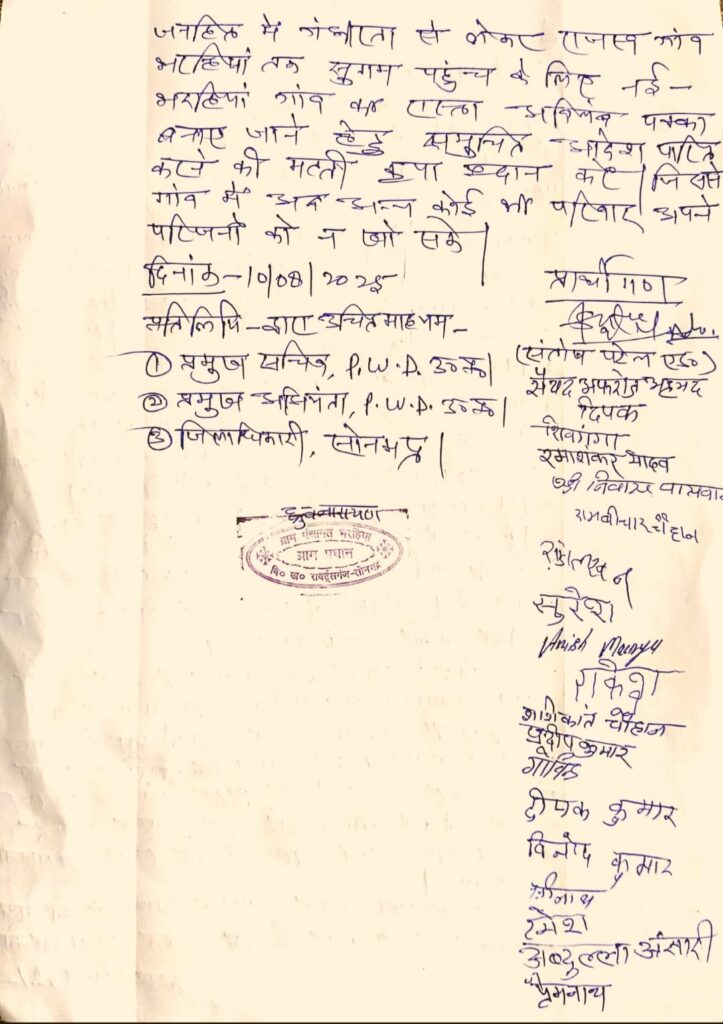 जनहित में गंधारता से लेकर राजस्व गांव
भरहियां तक सुगम पहुंच के लिए नई-
भरहियां गांव का रास्ता अविलंब पक्का
बनाए जाने हेतु समुचित आदेश पारित
करने की महती कृपा प्रदान करें। जिससे
गांव में अब अन्य कोई भी परिवार अपने
परिजनों को न खो सके।
दिनांक-10/08/2025
प्रार्थीगण
प्रतिलिपि - द्वारा उचित माध्यम-
(संतोष पटेल एड०)
① प्रमुख सचिव, P.W.D. उ०प्र०।
सैयद अफरोज अहमद
② प्रमुख अभियंता, P.W.D. उ०प्र०।
दिपक
③ जिलाधिकारी, सोनभद्र।
शिवगंगा
रमाशंकर यादव
श्री निवास पासवान
रामबीचार चौहान
ध्रुवनारायण
ग्राम पंचायत भरहिया
ग्राम प्रधान
वि० ख० राबर्ट्सगंज-सोनभद्र
सुरेश
Anish Maurya
राकेश
शशिकांत चौहान
प्रदीप कुमार
गोविंद
दीपक कुमार
विनोद कुमार
श्रीनाथ
रमेश
अब्दुल्ला अंसारी
प्रेमनाथ